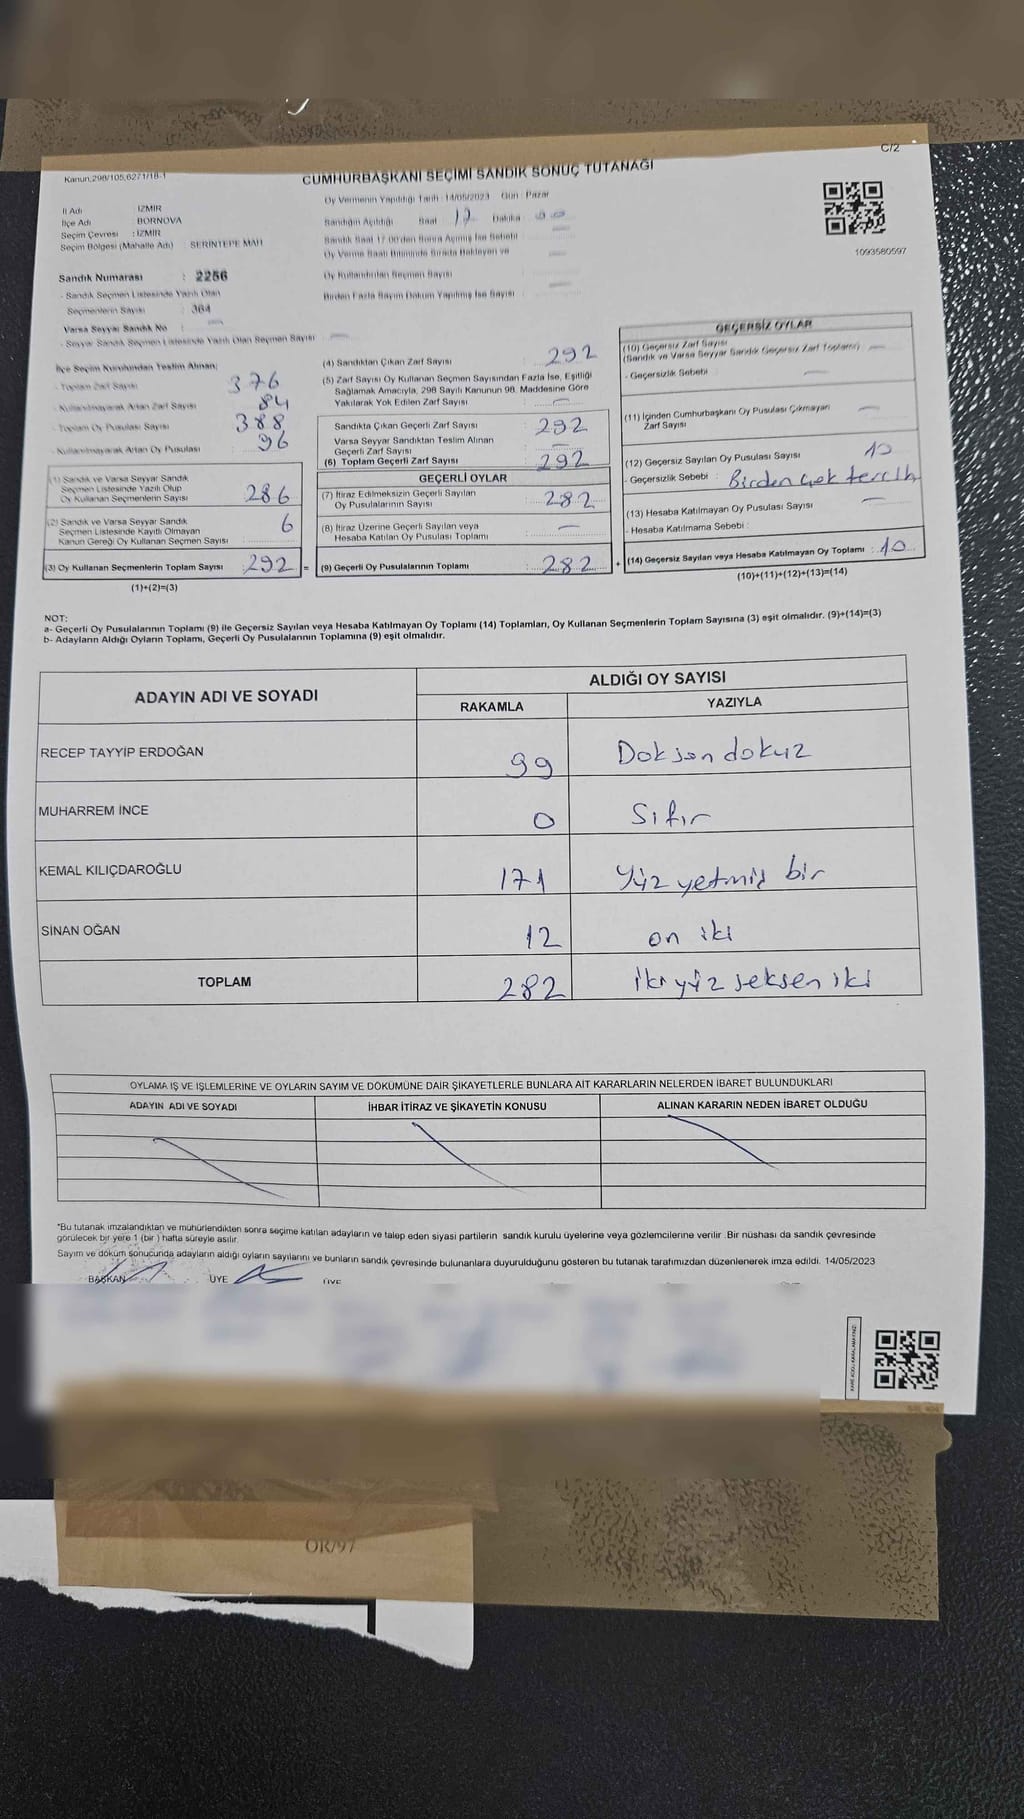 C/2
Kanun:298/105,6271/18-1
CUMHURBAŞKANI SEÇİMİ SANDIK SONUÇ TUTANAĞI
Oy Vermenin Yapıldığı Tarih : 14/05/2023 Gün : Pazar
İl Adı : İZMİR
İlçe Adı : BORNOVA
Seçim Çevresi : İZMİR
Seçim Bölgesi (Mahalle Adı) : SERİNTEPE MAH.
Sandığın Açıldığı Saat 17 Dakika 00
Sandık Saat 17.00'den Sonra Açılmış İse Sebebi
Oy Verme Saati Bitiminde Sırada Bekleyen ve
Oy Kullandırılan Seçmen Sayısı
Birden Fazla Sayım Döküm Yapılmış İse Sayısı
1093580597
Sandık Numarası : 2256
- Sandık Seçmen Listesinde Yazılı Olan
Seçmenlerin Sayısı : 364
Varsa Seyyar Sandık No
- Seyyar Sandık Seçmen Listesinde Yazılı Olan Seçmen Sayısı
İlçe Seçim Kurulundan Teslim Alınan;
- Toplam Zarf Sayısı 376
- Kullanılmayarak Artan Zarf Sayısı 84
- Toplam Oy Pusulası Sayısı 388
- Kullanılmayarak Artan Oy Pusulası 96
(1) Sandık ve Varsa Seyyar Sandık
Seçmen Listesinde Yazılı Olup
Oy Kullanan Seçmenlerin Sayısı 286
(2) Sandık ve Varsa Seyyar Sandık
Seçmen Listesinde Kayıtlı Olmayan
Kanun Gereği Oy Kullanan Seçmen Sayısı 6
(3) Oy Kullanan Seçmenlerin Toplam Sayısı 292 =
(1)+(2)=(3)
(4) Sandıktan Çıkan Zarf Sayısı : 292
(5) Zarf Sayısı Oy Kullanan Seçmen Sayısından Fazla İse, Eşitliği
Sağlamak Amacıyla, 298 Sayılı Kanunun 98. Maddesine Göre
Yakılarak Yok Edilen Zarf Sayısı : —
Sandıkta Çıkan Geçerli Zarf Sayısı : 292
Varsa Seyyar Sandıktan Teslim Alınan
Geçerli Zarf Sayısı : —
(6) Toplam Geçerli Zarf Sayısı : 292
GEÇERLİ OYLAR
(7) İtiraz Edilmeksizin Geçerli Sayılan
Oy Pusulalarının Sayısı : 282
(8) İtiraz Üzerine Geçerli Sayılan veya
Hesaba Katılan Oy Pusulası Toplamı : —
(9) Geçerli Oy Pusulalarının Toplamı : 282 +
GEÇERSİZ OYLAR
(10) Geçersiz Zarf Sayısı
(Sandık ve Varsa Seyyar Sandık Geçersiz Zarf Toplamı) : —
- Geçersizlik Sebebi : —
(11) İçinden Cumhurbaşkanı Oy Pusulası Çıkmayan
Zarf Sayısı : —
(12) Geçersiz Sayılan Oy Pusulası Sayısı : 10
- Geçersizlik Sebebi : Birden çok tercih
(13) Hesaba Katılmayan Oy Pusulası Sayısı : —
- Hesaba Katılmama Sebebi :
(14) Geçersiz Sayılan veya Hesaba Katılmayan Oy Toplamı : 10
(10)+(11)+(12)+(13)=(14)
NOT:
a- Geçerli Oy Pusulalarının Toplamı (9) ile Geçersiz Sayılan veya Hesaba Katılmayan Oy Toplamı (14) Toplamları, Oy Kullanan Seçmenlerin Toplam Sayısına (3) eşit olmalıdır. (9)+(14)=(3)
b- Adayların Aldığı Oyların Toplamı, Geçerli Oy Pusulalarının Toplamına (9) eşit olmalıdır.
ADAYIN ADI VE SOYADI
ALDIĞI OY SAYISI
RAKAMLA YAZIYLA
RECEP TAYYİP ERDOĞAN 99 Doksan dokuz
MUHARREM İNCE 0 Sıfır
KEMAL KILIÇDAROĞLU 171 Yüz yetmiş bir
SİNAN OĞAN 12 on iki
TOPLAM 282 iki yüz seksen iki
OYLAMA İŞ VE İŞLEMLERİNE VE OYLARIN SAYIM VE DÖKÜMÜNE DAİR ŞİKAYETLERLE BUNLARA AİT KARARLARIN NELERDEN İBARET BULUNDUKLARI
ADAYIN ADI VE SOYADI İHBAR İTİRAZ VE ŞİKAYETİN KONUSU ALINAN KARARIN NEDEN İBARET OLDUĞU
*Bu tutanak imzalandıktan ve mühürlendikten sonra seçime katılan adayların ve talep eden siyasi partilerin sandık kurulu üyelerine veya gözlemcilerine verilir .Bir nüshası da sandık çevresinde
görülecek bir yere 1 (bir ) hafta süreyle asılır.
Sayım ve döküm sonucunda adayların aldığı oyların sayılarını ve bunların sandık çevresinde bulunanlara duyurulduğunu gösteren bu tutanak tarafımızdan düzenlenerek imza edildi. 14/05/2023
BAŞKAN ÜYE ÜYE
OR/97